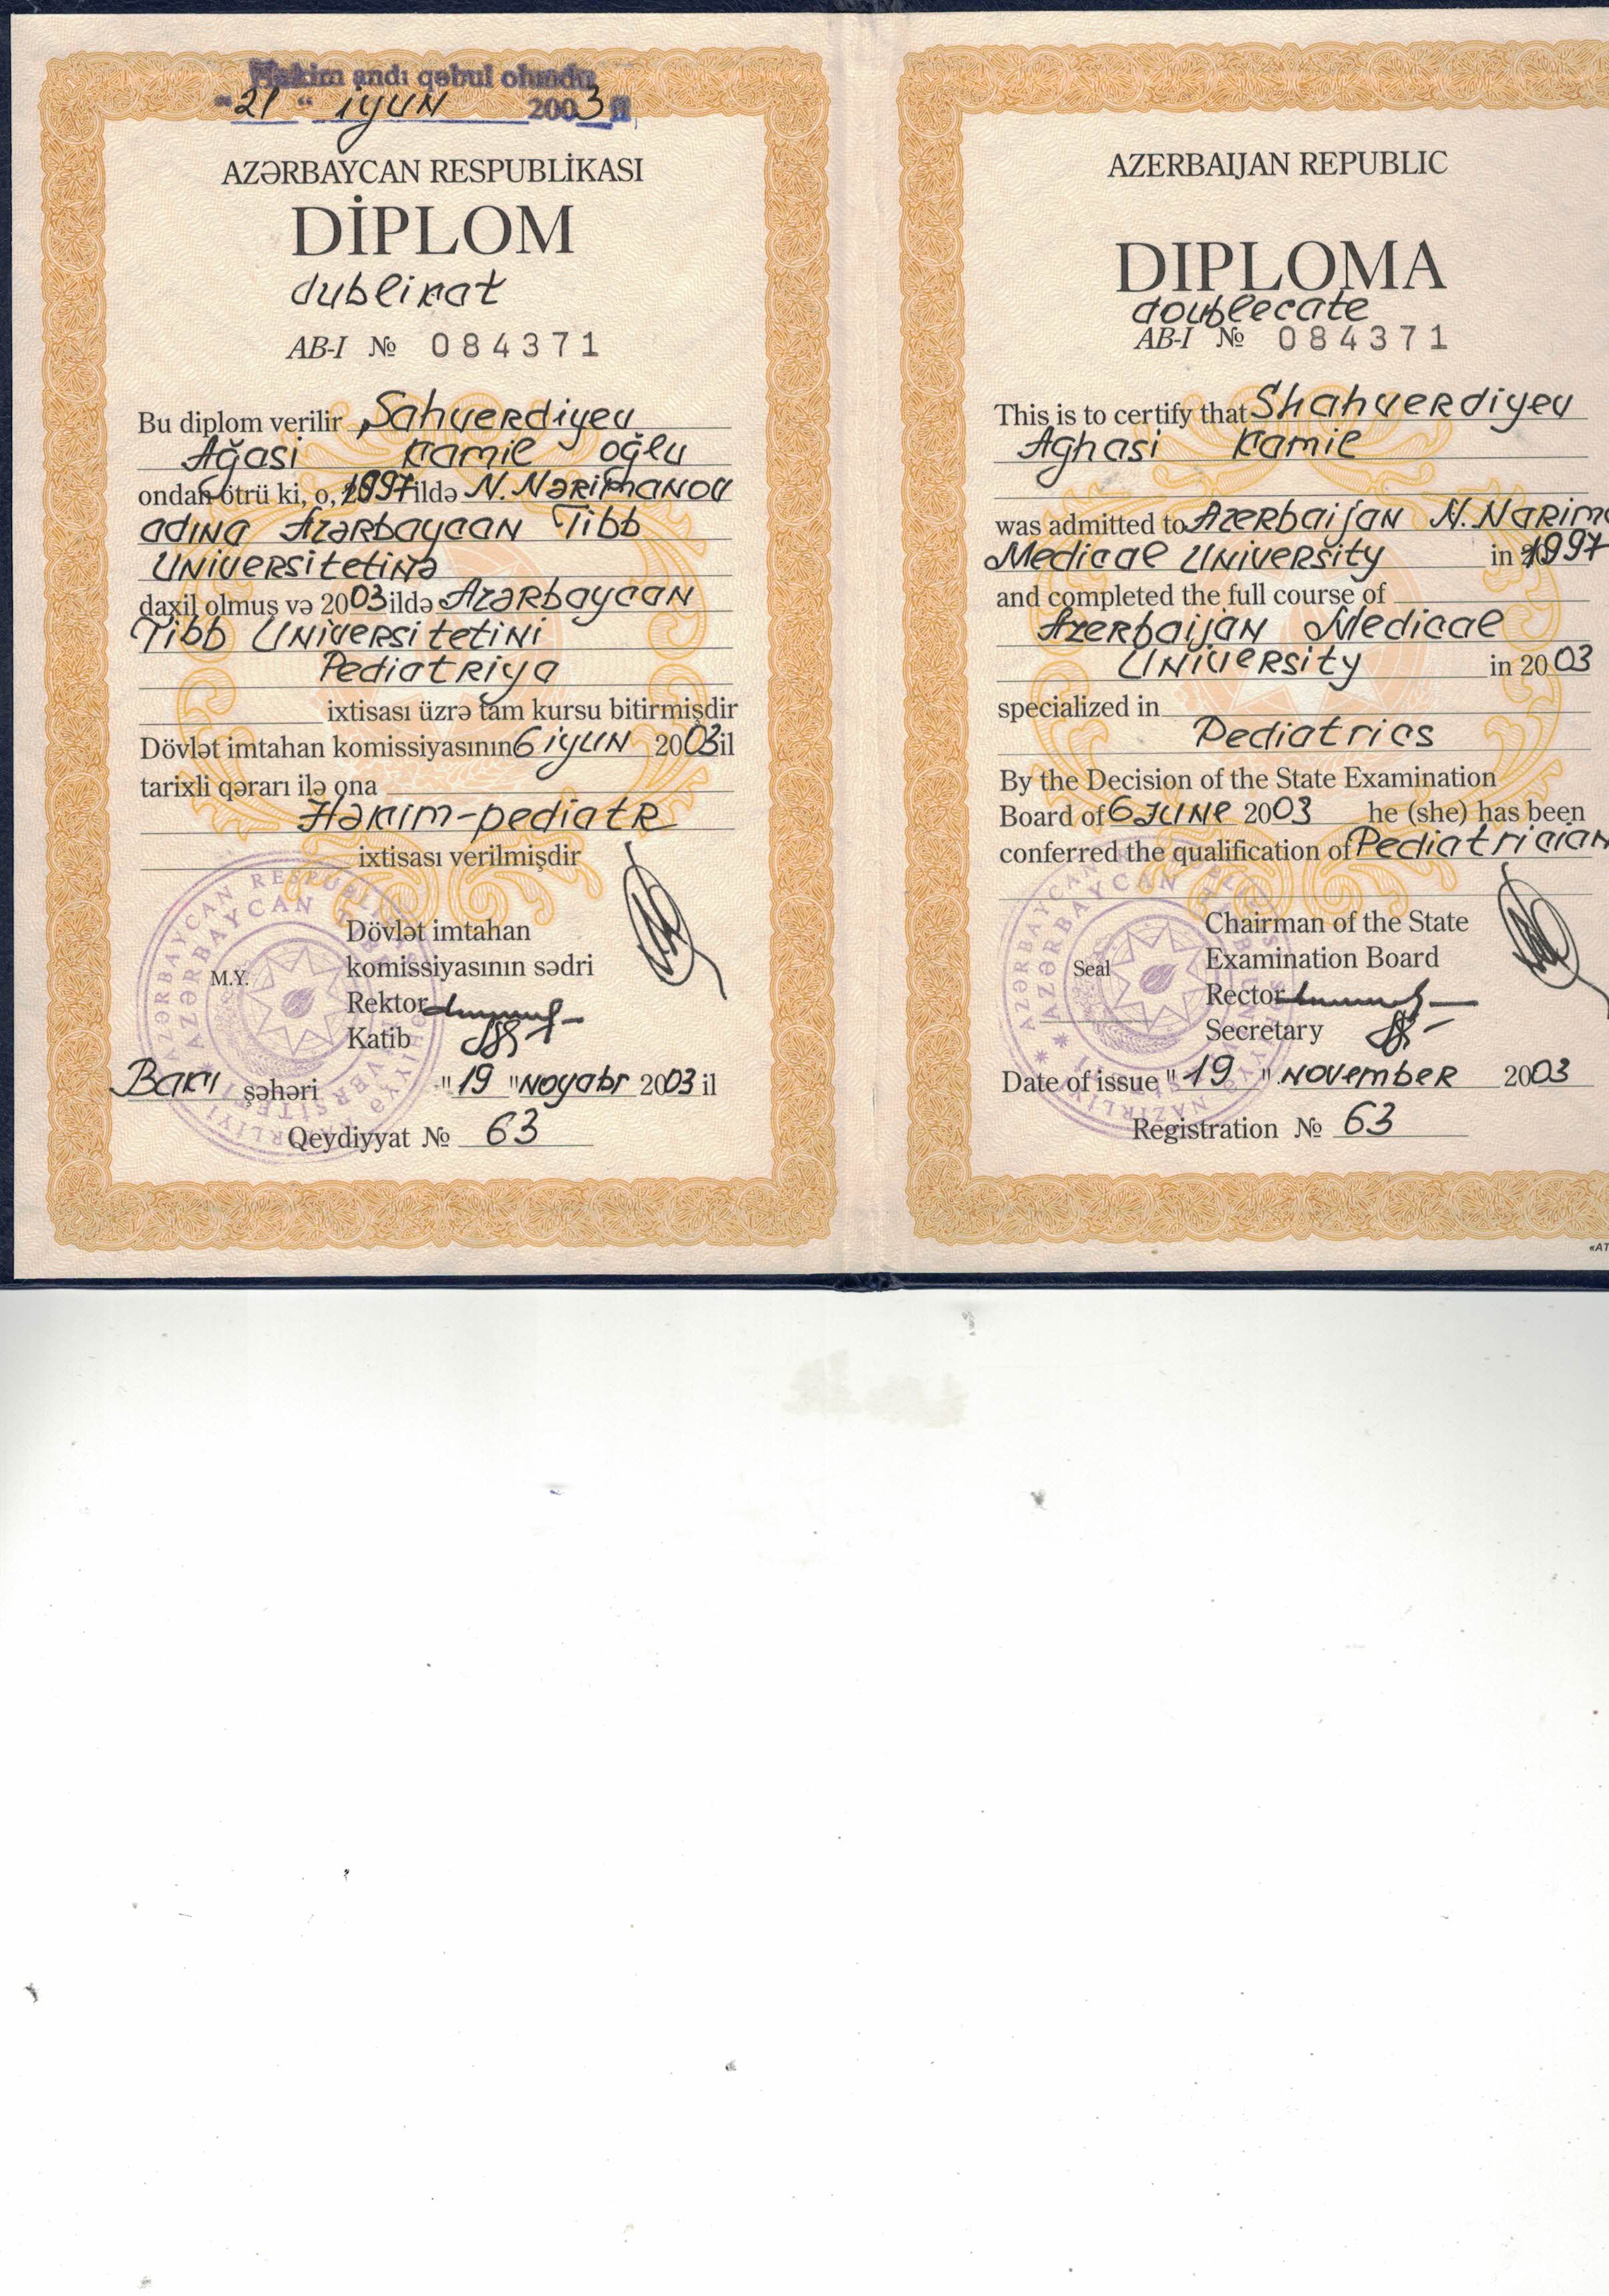 Həkim andı qəbul olundu
"21" iyun 2003 il
AZƏRBAYCAN RESPUBLİKASI
DİPLOM
dublikat
AB-I № 084371
Bu diplom verilir Şahverdiyev
Ağasi Kamil oğlu
ondan ötrü ki, o, 1997 ildə N.Nərimanov
adına Azərbaycan Tibb
Universitetinə
daxil olmuş və 2003 ildə Azərbaycan
Tibb Universitetini
Pediatriya
ixtisası üzrə tam kursu bitirmişdir
Dövlət imtahan komissiyasının 6 iyun 2003 il
tarixli qərarı ilə ona
Həkim-pediatr
ixtisası verilmişdir
Dövlət imtahan
komissiyasının sədri
M.Y.
Rektor
Katib
Bakı şəhəri "19" noyabr 2003 il
Qeydiyyat № 63
AZERBAIJAN REPUBLIC
DIPLOMA
doublecate
AB-I № 084371
This is to certify that Shahverdiyev
Aghasi Kamil
was admitted to Azerbaijan N.Narim
Medical University in 1997
and completed the full course of
Azerbaijan Medical
University in 2003
specialized in
Pediatrics
By the Decision of the State Examination
Board of 6 June 2003 he (she) has been
conferred the qualification of Pediatrician
Chairman of the State
Examination Board
Seal
Rector
Secretary
Date of issue "19" november 2003
Registration № 63
«AT